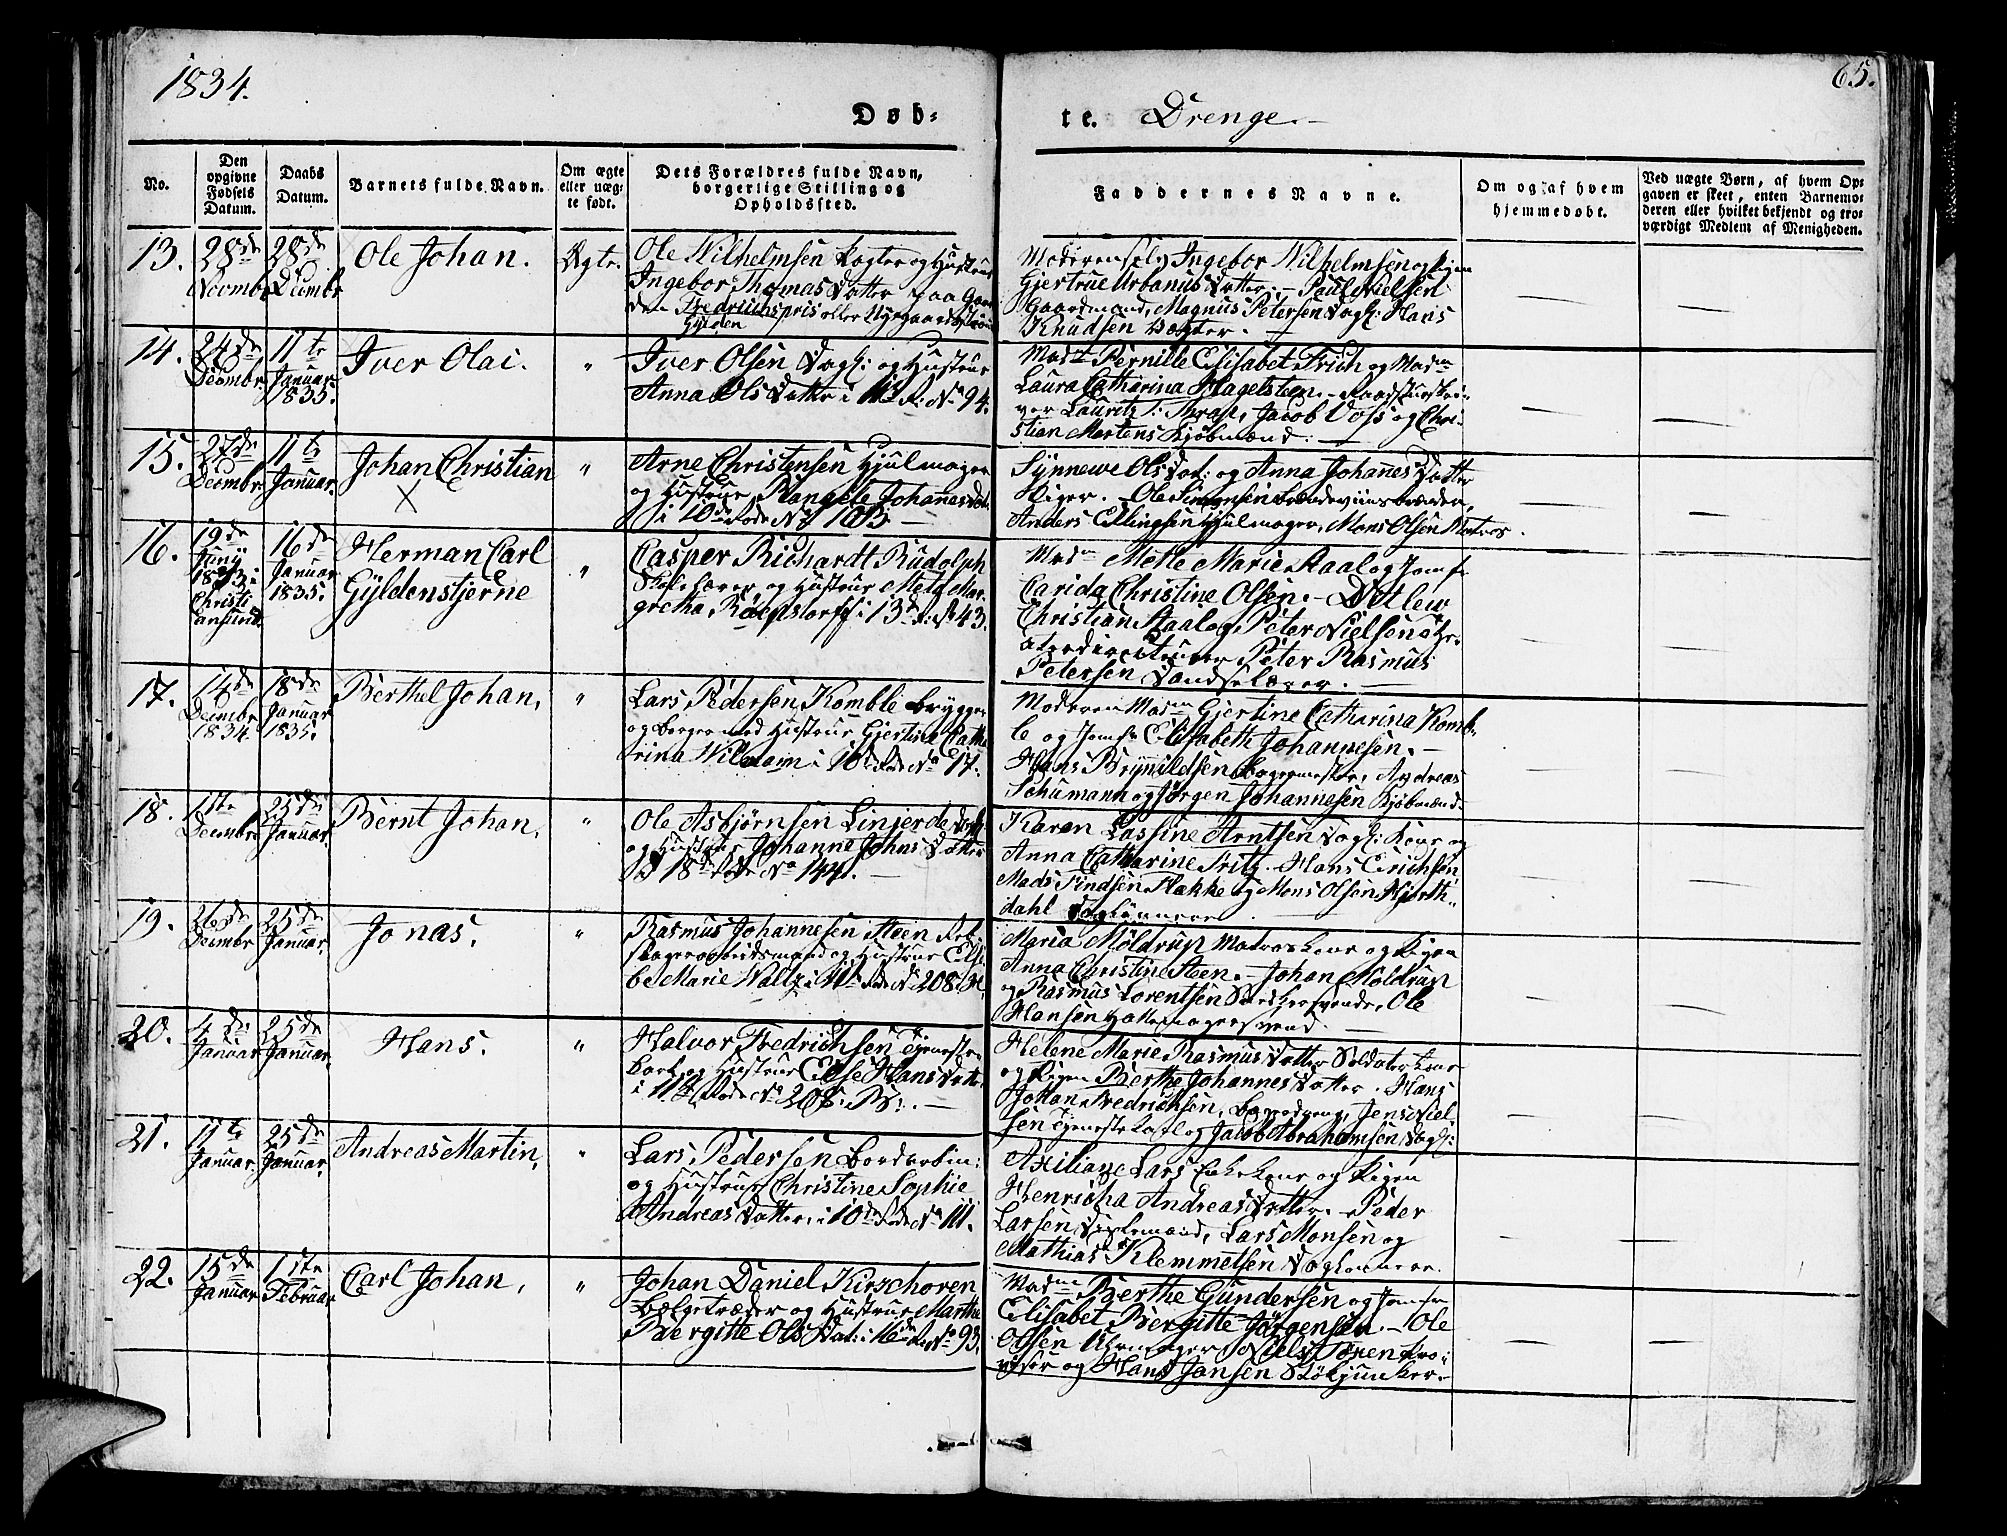 1834.
65.
Døb-
te. Drenge.
No.
Den opgivne Fødsels Datum.
Daabs Datum.
Barnets fulde Navn.
Om ægte eller uægte født.
Dets Forældres fulde Navn, borgerlige Stilling og Opholdssted.
Faddernes Navne.
Om og af hvem hjemmedøbt.
Ved uægte Børn, af hvem Opgaven er skeet, enten Barnemoderen eller hvilket bekjendt og troværdigt Medlem af Menigheden.
13.
28de Novembr
28de Decembr
Ole Johan.
Ægte.
Ole Wilhelmsen og Hustrue
Ingebor Thomas Datter paa
Fredrichspris eller
Moderen selv Ingebor Wilhelmsen og Pigen
Gjertrue Urbanus Datter. — Paul Nielsen
Gaardmand, Magnus Petersen Dagk: Hans
Knudsen
14.
24de Decembr.
11te Januar 1835.
Iver Olai.
"
Iver Olsen Dagk: og Hustrue
Anna Ols Datter i R: No 94.
Madm Pernille Elisabet Frich og Madm
Laura Catharina Hagelsteen. Raadstueskri-
ver Lauritz T: Thrap, Jacob Voss og Chri-
stian Martens Kjøbmænd.
15.
27de Decembr
11te Januar.
Johan Christian
X
"
Arne Christensen Hjulmager
og Hustrue Johannesdat.
i 10de Rode No
Synnewe Ols Dat: og Anna Johanes Datter
Piger. Ole Simonsen Brændeviinsbrænder,
Anders Ellingsen Hjulmager, Mons Olsen Matros.
16.
19de Juny 1833 i Christiansund.
16de Januar 1835.
Herman Carl
Gyldenstjerne
"
Casper Richardt Rudolph
og Hustrue Meta Mar-
gretha i 13de R: No 43.
Madm Mette Marie Staal og Jomf.
Carida Christine Olsen. — Detlew
Christian Staal og Peter Nielsen
Peter Rasmus
Petersen Dandselærer.
17.
14de Decembr 1834.
18de Januar 1835.
Berthel Johan,
"
Lars Pedersen Komble brygger
og borger med Hustrue Gjertine Catha
rina i 10de Rode No 17.
Moderen Madm Gjertine Catharina Komb-
le og Jomfr Elisabeth Johannesen. —
Hans Brynildsen Bagermester, Andreas
Schumann og Jørgen Johannesen Kjøbmænd.
18.
Decembr
25de Januar.
Bernt Johan,
"
Ole Asbjørnsen
og Hustrue Johanne Johns Datter
i 18de Rode No 144. —
Karen Lassine Arntsen Dagk: Kone og
Anna Catharine Fritz. Hans Erichsen
Mads Flakke og Mons Olsen Hjorth-
dahl Dagkonnere
19.
26de Decembr
25de Januar.
Jonas.
"
Rasmus Johannesen Steen
og Hustrue
be Marie Waltz i Rode No 208.
Maria Møldrup Matros kone og Pigen
Anna Christine Steen. — Johan Møldrup
og Rasmus Lorentsen Ole
Hansen Hattemagersvend
20.
4de Januar
25de Januar.
Hans.
"
Halvor Fredrichsen Tjeneste
karl og Hustrue Else Hans Datter
i 11te Rode No 208. B: —
Helene Marie Rasmus Datter Soldater kone
og Pigen Berthe Johannes Datter. Hans
Johan Fredrichsen, Jens Niel-
sen Tjenestekarl og Jacob Abrahamsen Dagk:
21.
11te Januar
25de Januar.
Andreas Martin,
"
Lars Pedersen
og Hustrue Christine Sophie
Andreas Datter, i 10de Rode No 111.
Axiliane Lars Enkekone og Pigen
Henricha Andreas Datter. — Peder
Larsen Lars Monsen og
Mathias Klemmetsen Dagkonnere.
22.
15de Januar
1ste Februar
Carl Johan,
"
Johan Daniel Kirschoren
Bælgetræder og Hustrue Marthe
Bergitte Ols Dat: i 16de Rode No 93.
Madme Berthe Gundersen og Jomfr
Elisabet Bergitte Jørgensen. — Ole
Olsen Uhrmager, Niels
og Hans Jansen